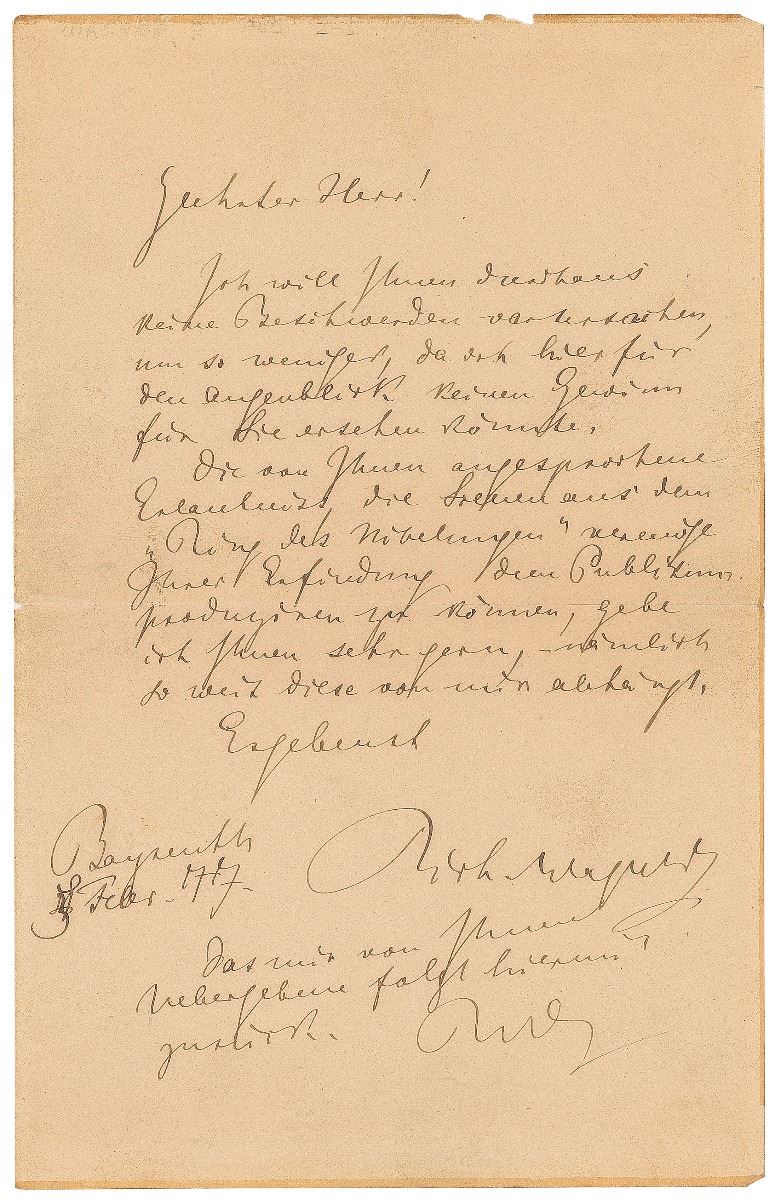 Geehrter Herr!
Ich will Ihnen durchaus
keine Beschwerden verursachen,
um so weniger, da ich hier für
den Augenblick keinen Gewinn
für Sie ersehen könnte.
Die von Ihnen angesprochene
Erlaubniss, die Scenen aus dem
„Ring des Nibelungen" vermöge
Ihrer Erfindung dem Publikum
produziren zu können, gebe
ich Ihnen sehr gern, – nämlich
so weit diese von mir abhängt.
Ergebenst
Bayreuth
Febr.
Rich. Wagner
Das mir von Ihnen
Uebergebene folgt hiermit
zurück. RW